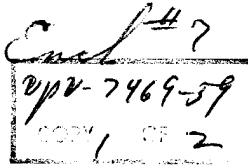 Encl #7
vpv-7469-59
COPY 1 OF 2